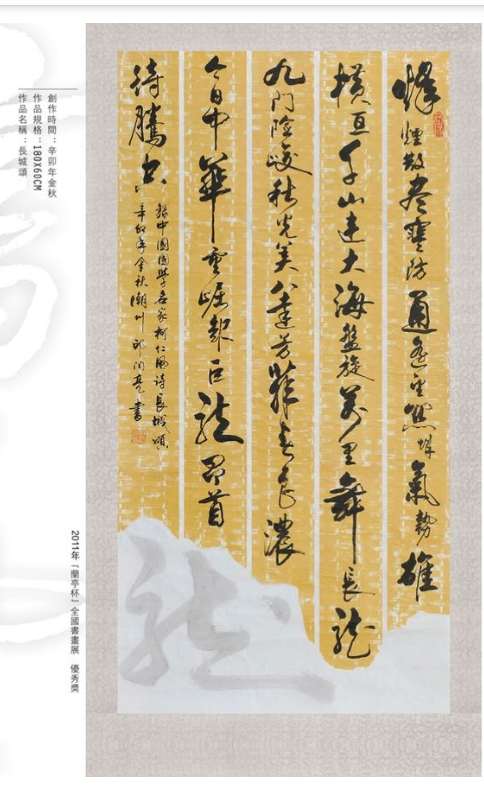 烽煙散尽塞防通遙望氣勢雄
横亘千山連大海盤旋萬里舞長龙
九門險峻秋光美八達芳菲春色濃
今日中華重崛起巨龙昂首
待騰空
錄中國國學名家柯仁風詩長城頌
辛卯年金秋潮州邱潤亮書
創作時間：辛卯年金秋
作品規格：180X60CM
作品名稱：長城頌
2011年「蘭亭杯」全國書畫展 優秀獎